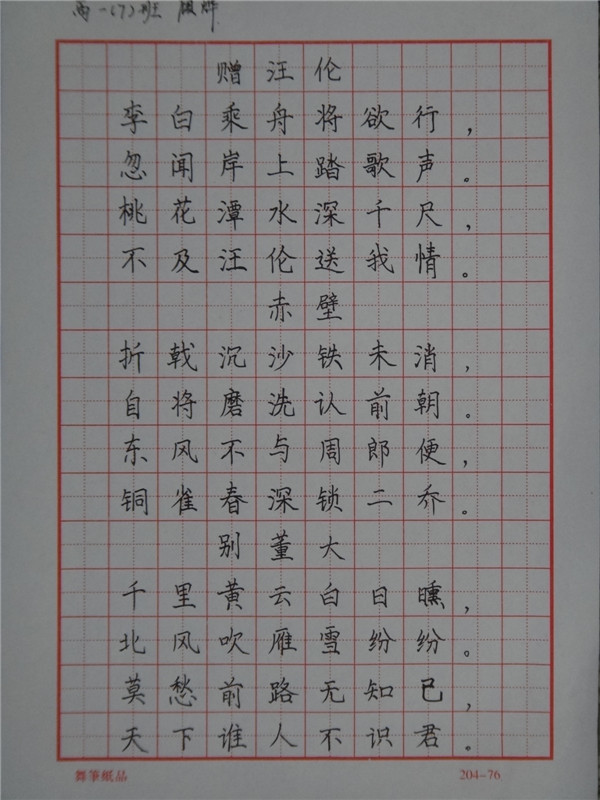 赠汪伦
李白乘舟将欲行，
忽闻岸上踏歌声。
桃花潭水深千尺，
不及汪伦送我情。
赤壁
折戟沉沙铁未消，
自将磨洗认前朝。
东风不与周郎便，
铜雀春深锁二乔。
别董大
千里黄云白日曛，
北风吹雁雪纷纷。
莫愁前路无知已，
天下谁人不识君。
舞筆紙品 204-76